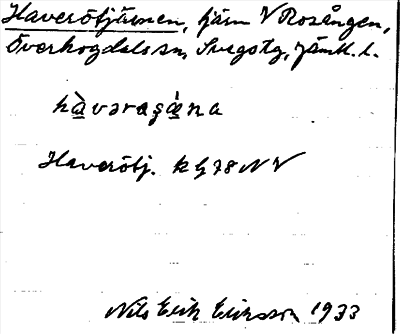 Haverötjärnen, tjärn V Rosången,
Överhogdals sn, Svegs tg, Jämtl. l.
hàvəraʂæ̀na
Haverötj. k G 78 NV
Nils Erik Eriksson 1933